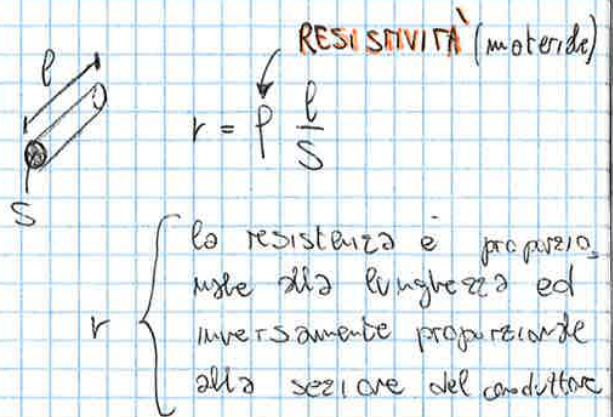 RESISTIVITÀ (materiale)
l
r = ρ l/S
S
la resistenza è proporzio_
nale alla lunghezza ed
r
inversamente proporzionale
alla sezione del conduttore